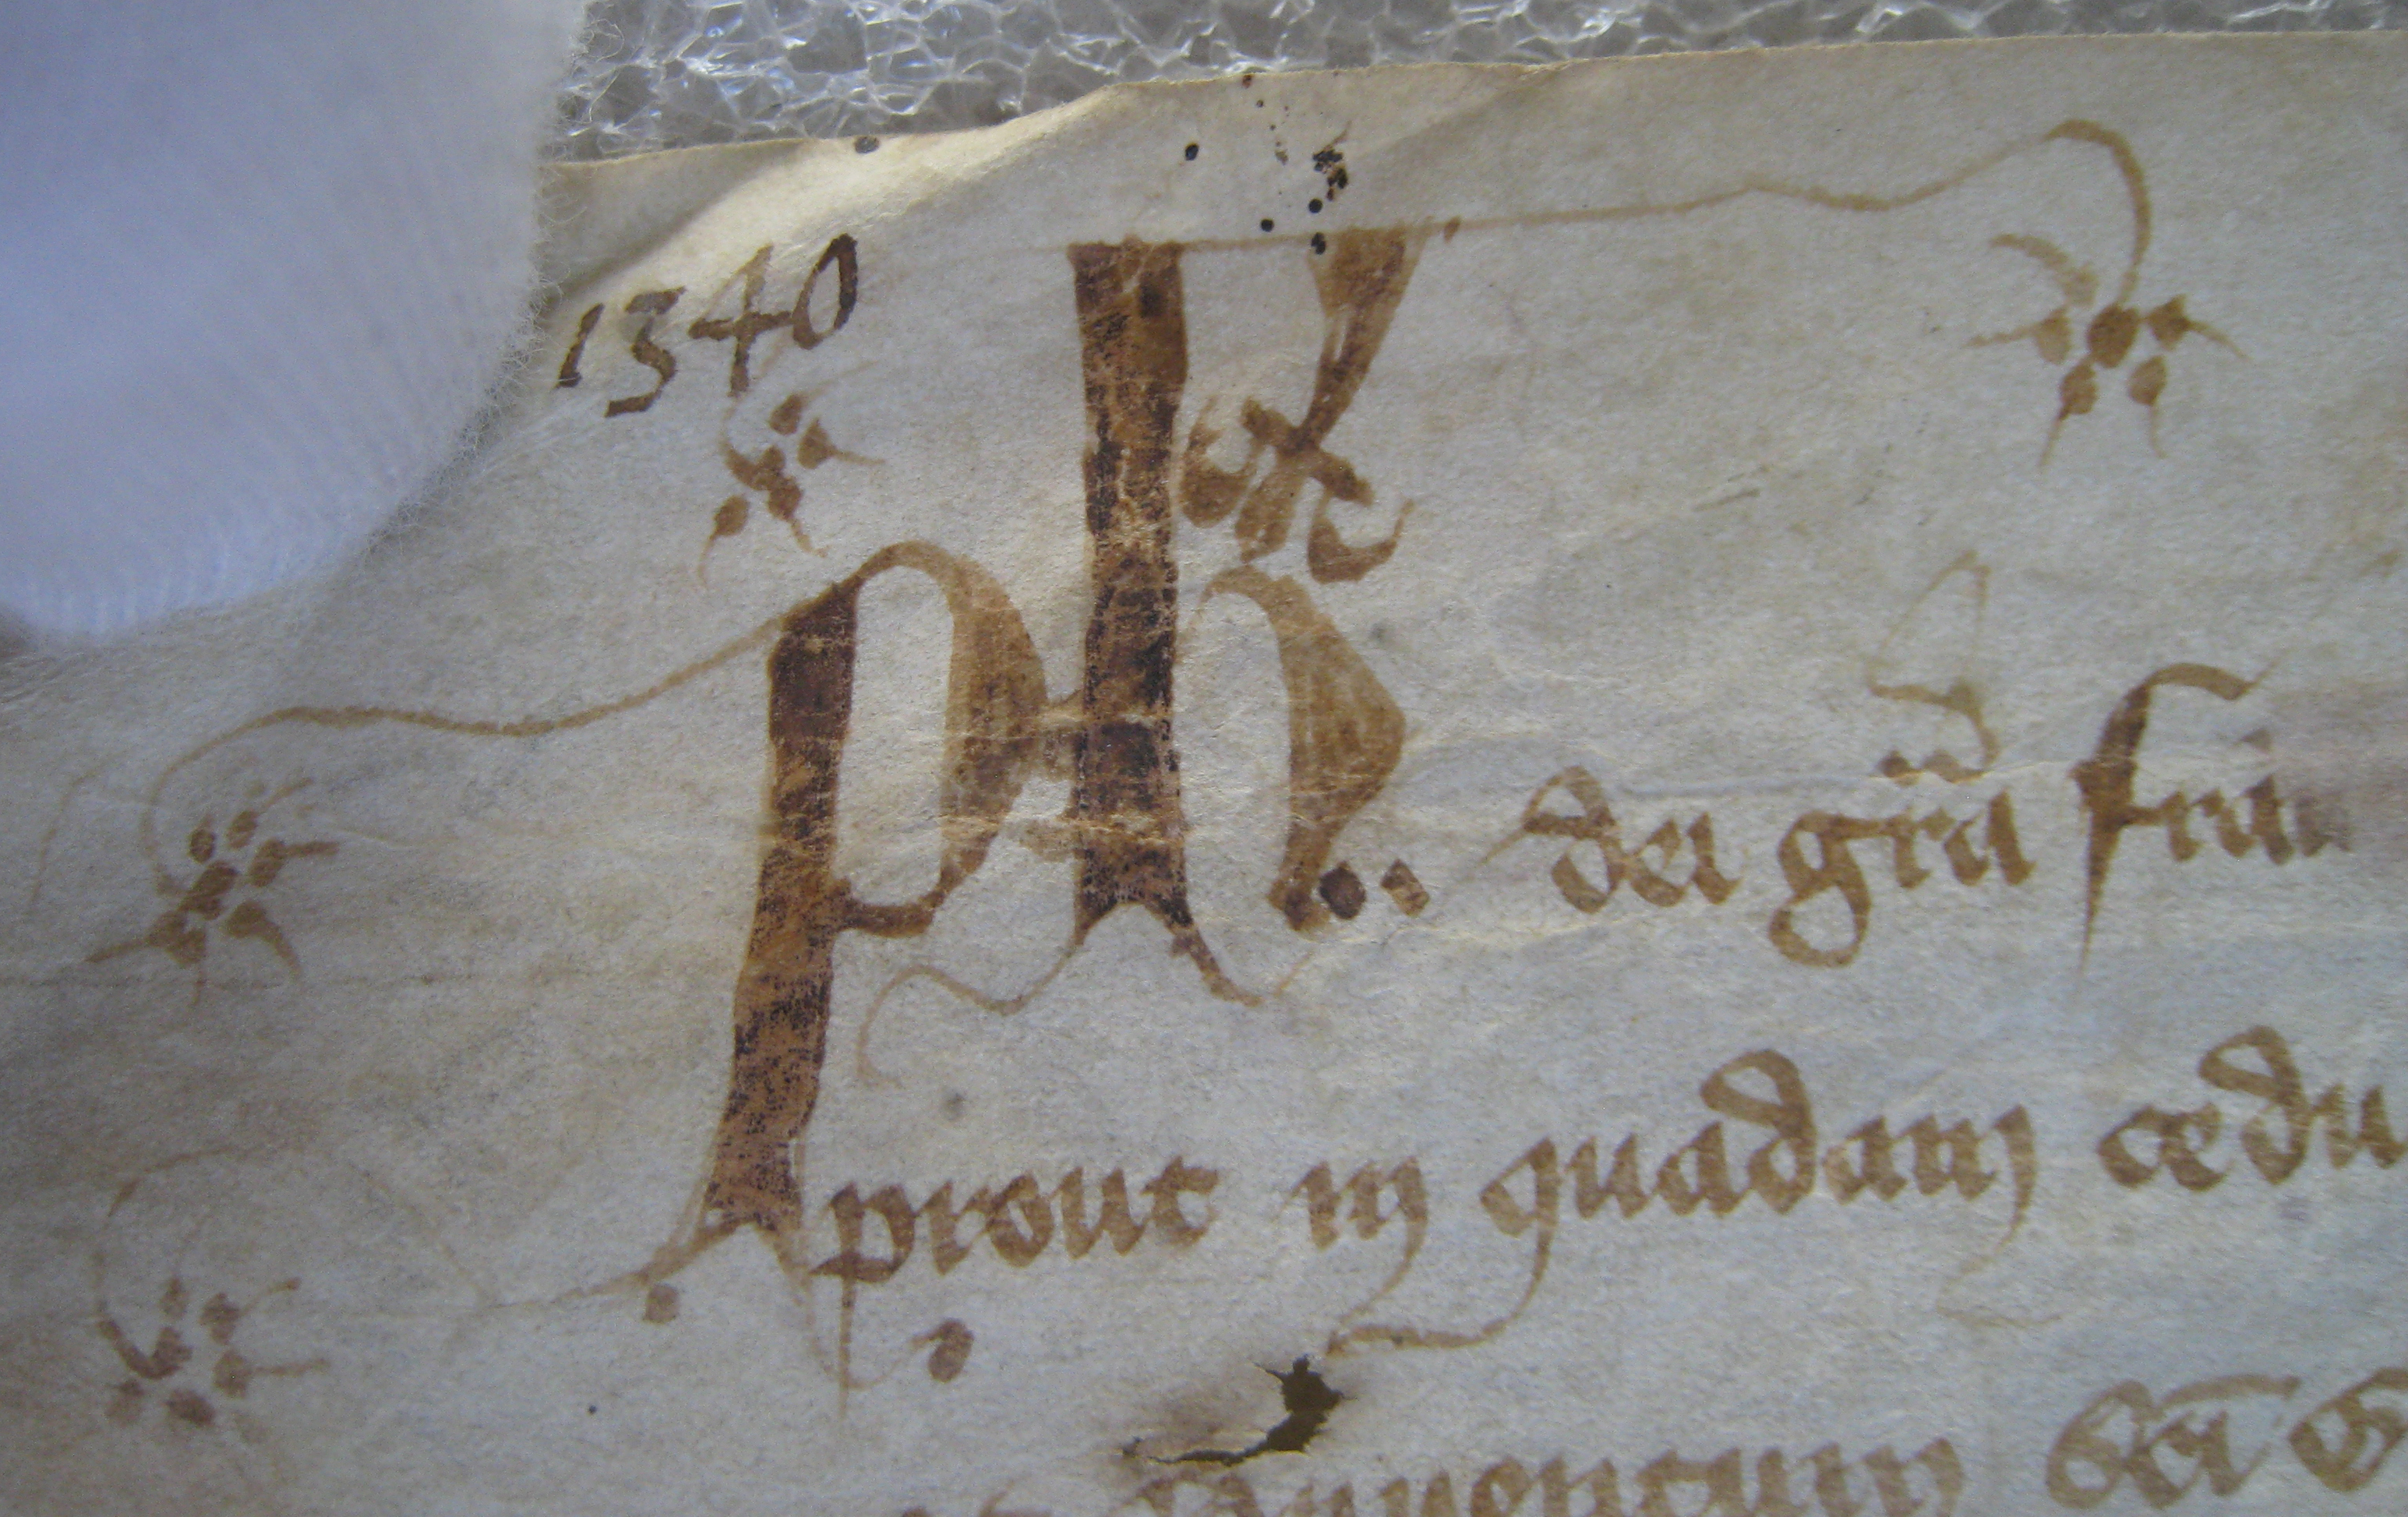 1340
ph dei gra fran
prout in quadam cedu
conventum sci